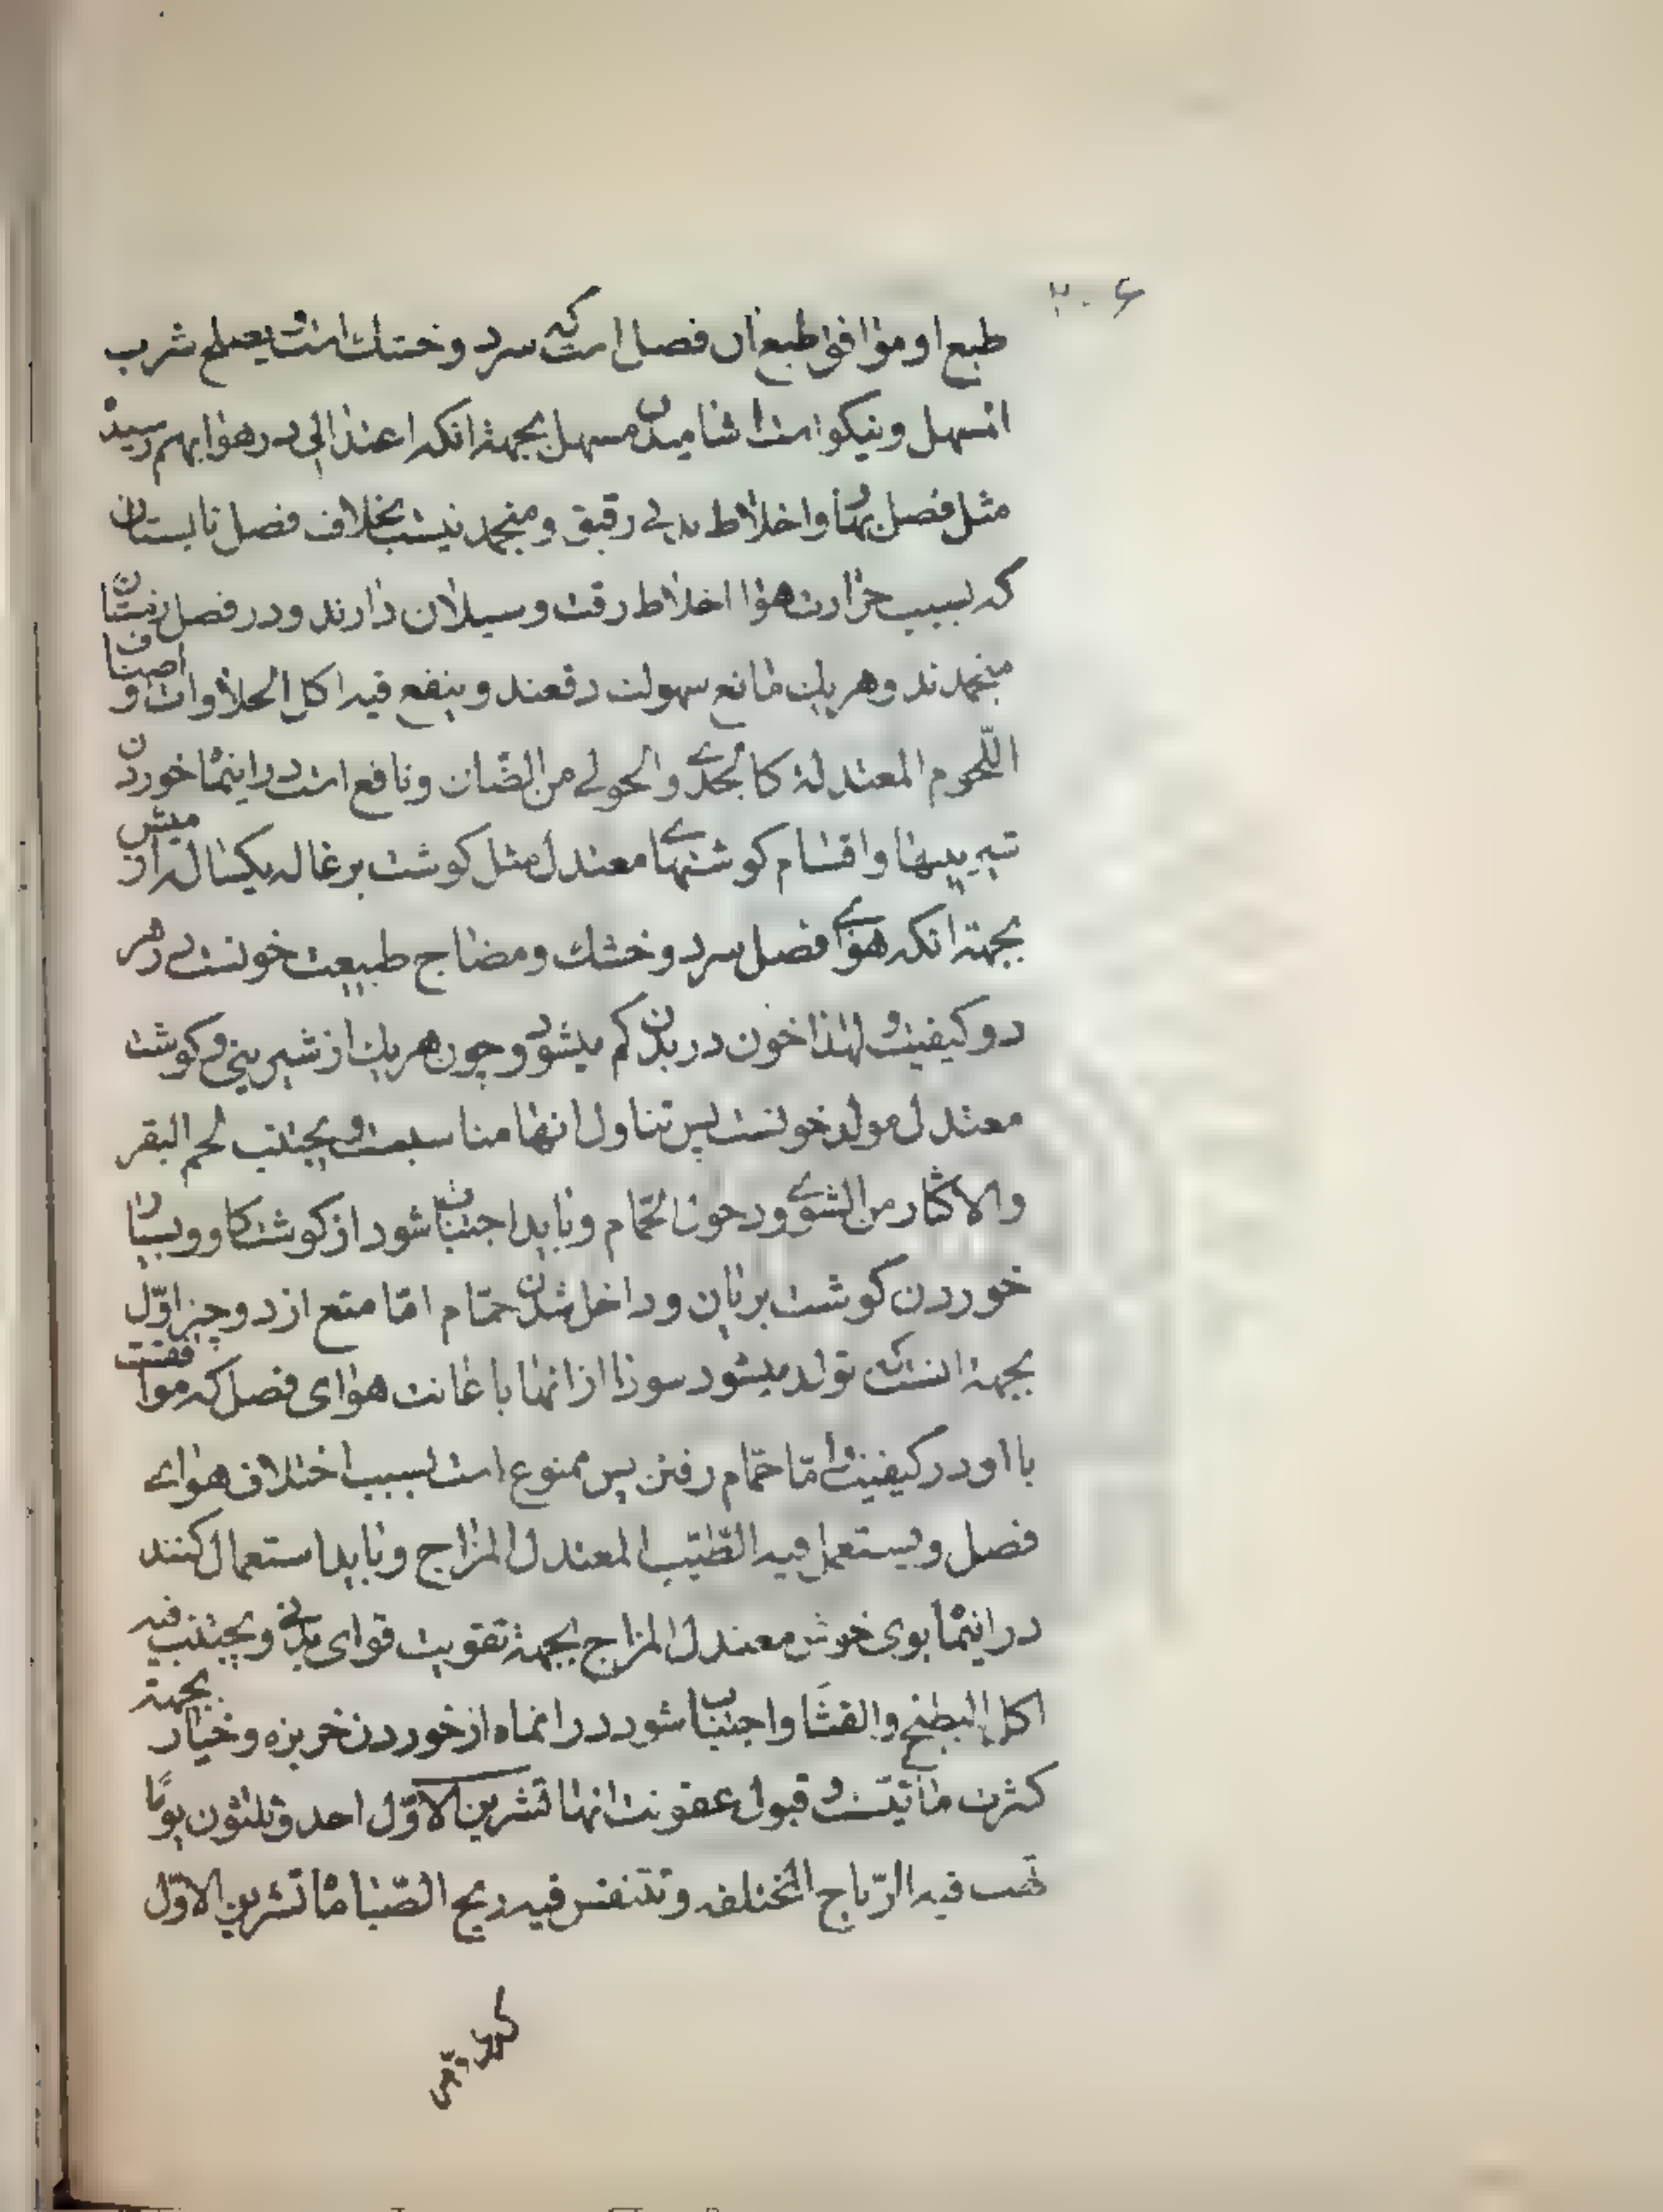 ۲۰۶
طبع او موافق طبع ان فصل است که سرد و خشك است و یصلح شرب
المسهل و نیکو است اشامیدن مسهل بجهة انکه اعتدالی در هوا بهم رسیده
مثل فصل بهار و اخلاط بدنی رقیق و منجمد نیست بخلاف فصل تابستان
که بسبب حرارت هوا اخلاط رقت و سیلان دارند و در فصل زمستان
منجمدند و هر یك مانع سهولت دفعند و ینفع فیه اکل الحلاوات و اصناف
اللّحوم المعتدلة کالجدی و الحولی من الضّان و نافع است در اینماه خوردن
شیرینیها و اقسام کوشتهای معتدل مثل کوشت برغاله یکساله از میش
بجهة انکه هوای فصل سرد و خشك و مضاج طبیعت خونست در هر
دو کیفیت و لهذا خون در بدن کم میشود و چون هر یك از شیرینی و کوشت
معتدل مولد خونست پس تناول انها مناسبست و یجتنب لحم البقر
والاکثار من الشوی و دخون الحمّام و باید اجتناب شود از کوشت کاو و بسیار
خوردن کوشت بریان و داخل شدن حمّام امّا منع از دو چیز اوّل
بجهة انست که تولد میشود سودا از انها با عانت هوای فصل که موافقست
با او در کیفیت امّا حمّام رفتن پس ممنوع است بسبب اختلاف هوای
فصل و یستعمل فیه الطّیب المعتدل المزاج و باید استعمال کنند
در اینماه بوی خوش معتدل المزاج بجهة تقویت قوای بدنی و یجتنب فیه
اکل البطیخ والقثّا و اجتناب شود در انماه از خوردن خربزه و خیار بجهة
کثرت مائیّت و قبول عفونت انها تشرین الاوّل احد و ثلثون یومًا
تهب فیه الرّیاح المختلفه و تتنفس فیه ریح الصّبا ماه تشرین الاوّل